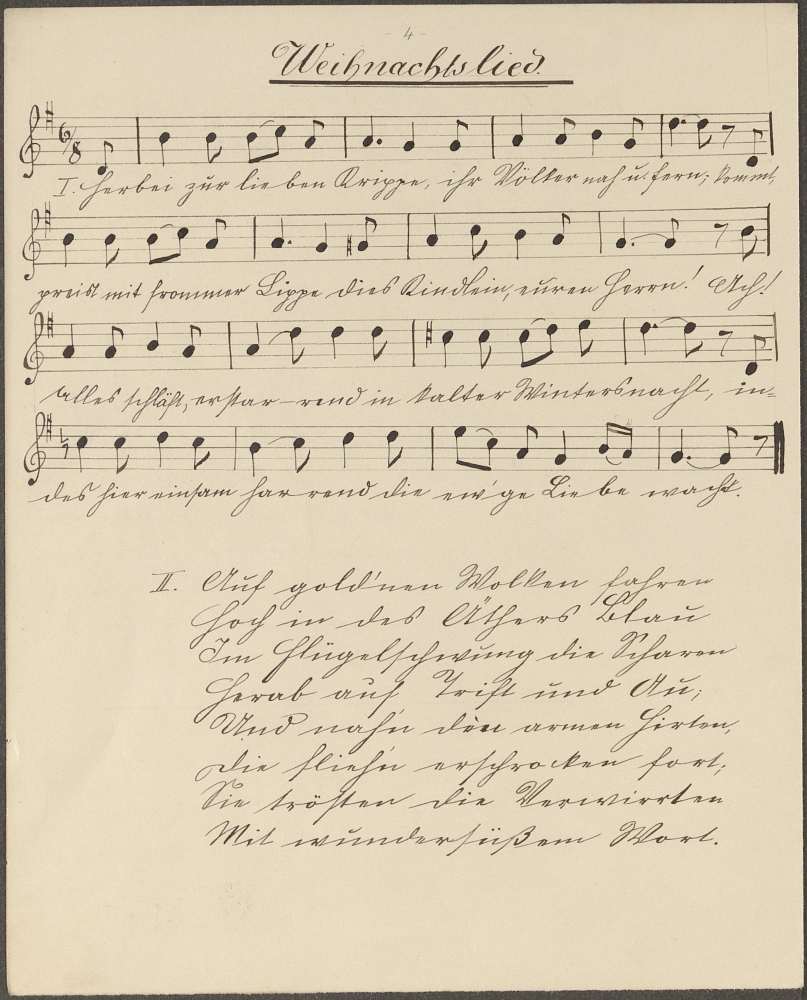 - 4 -
Weihnachtslied.
6/8
I. Herbei zur lieben Krippe, ihr Völker nah u. fern; kommt,
preist mit frommer Lippe dies Kindlein, euren Herrn! Ach!
alles schläft, erstar-rend in kalter Wintersnacht, in=
des hier einsam harrend die ew'ge Liebe wacht.
II. Auf gold'nen Wolken fahren
Hoch in des Äthers Blau
Im Flügelschwung die Scharen
Herab auf Trift und Au;
Und nah'n den armen Hirten,
Die flieh'n erschrocken fort;
Sie trösten die Verwirrten
Mit wundersüßem Wort.